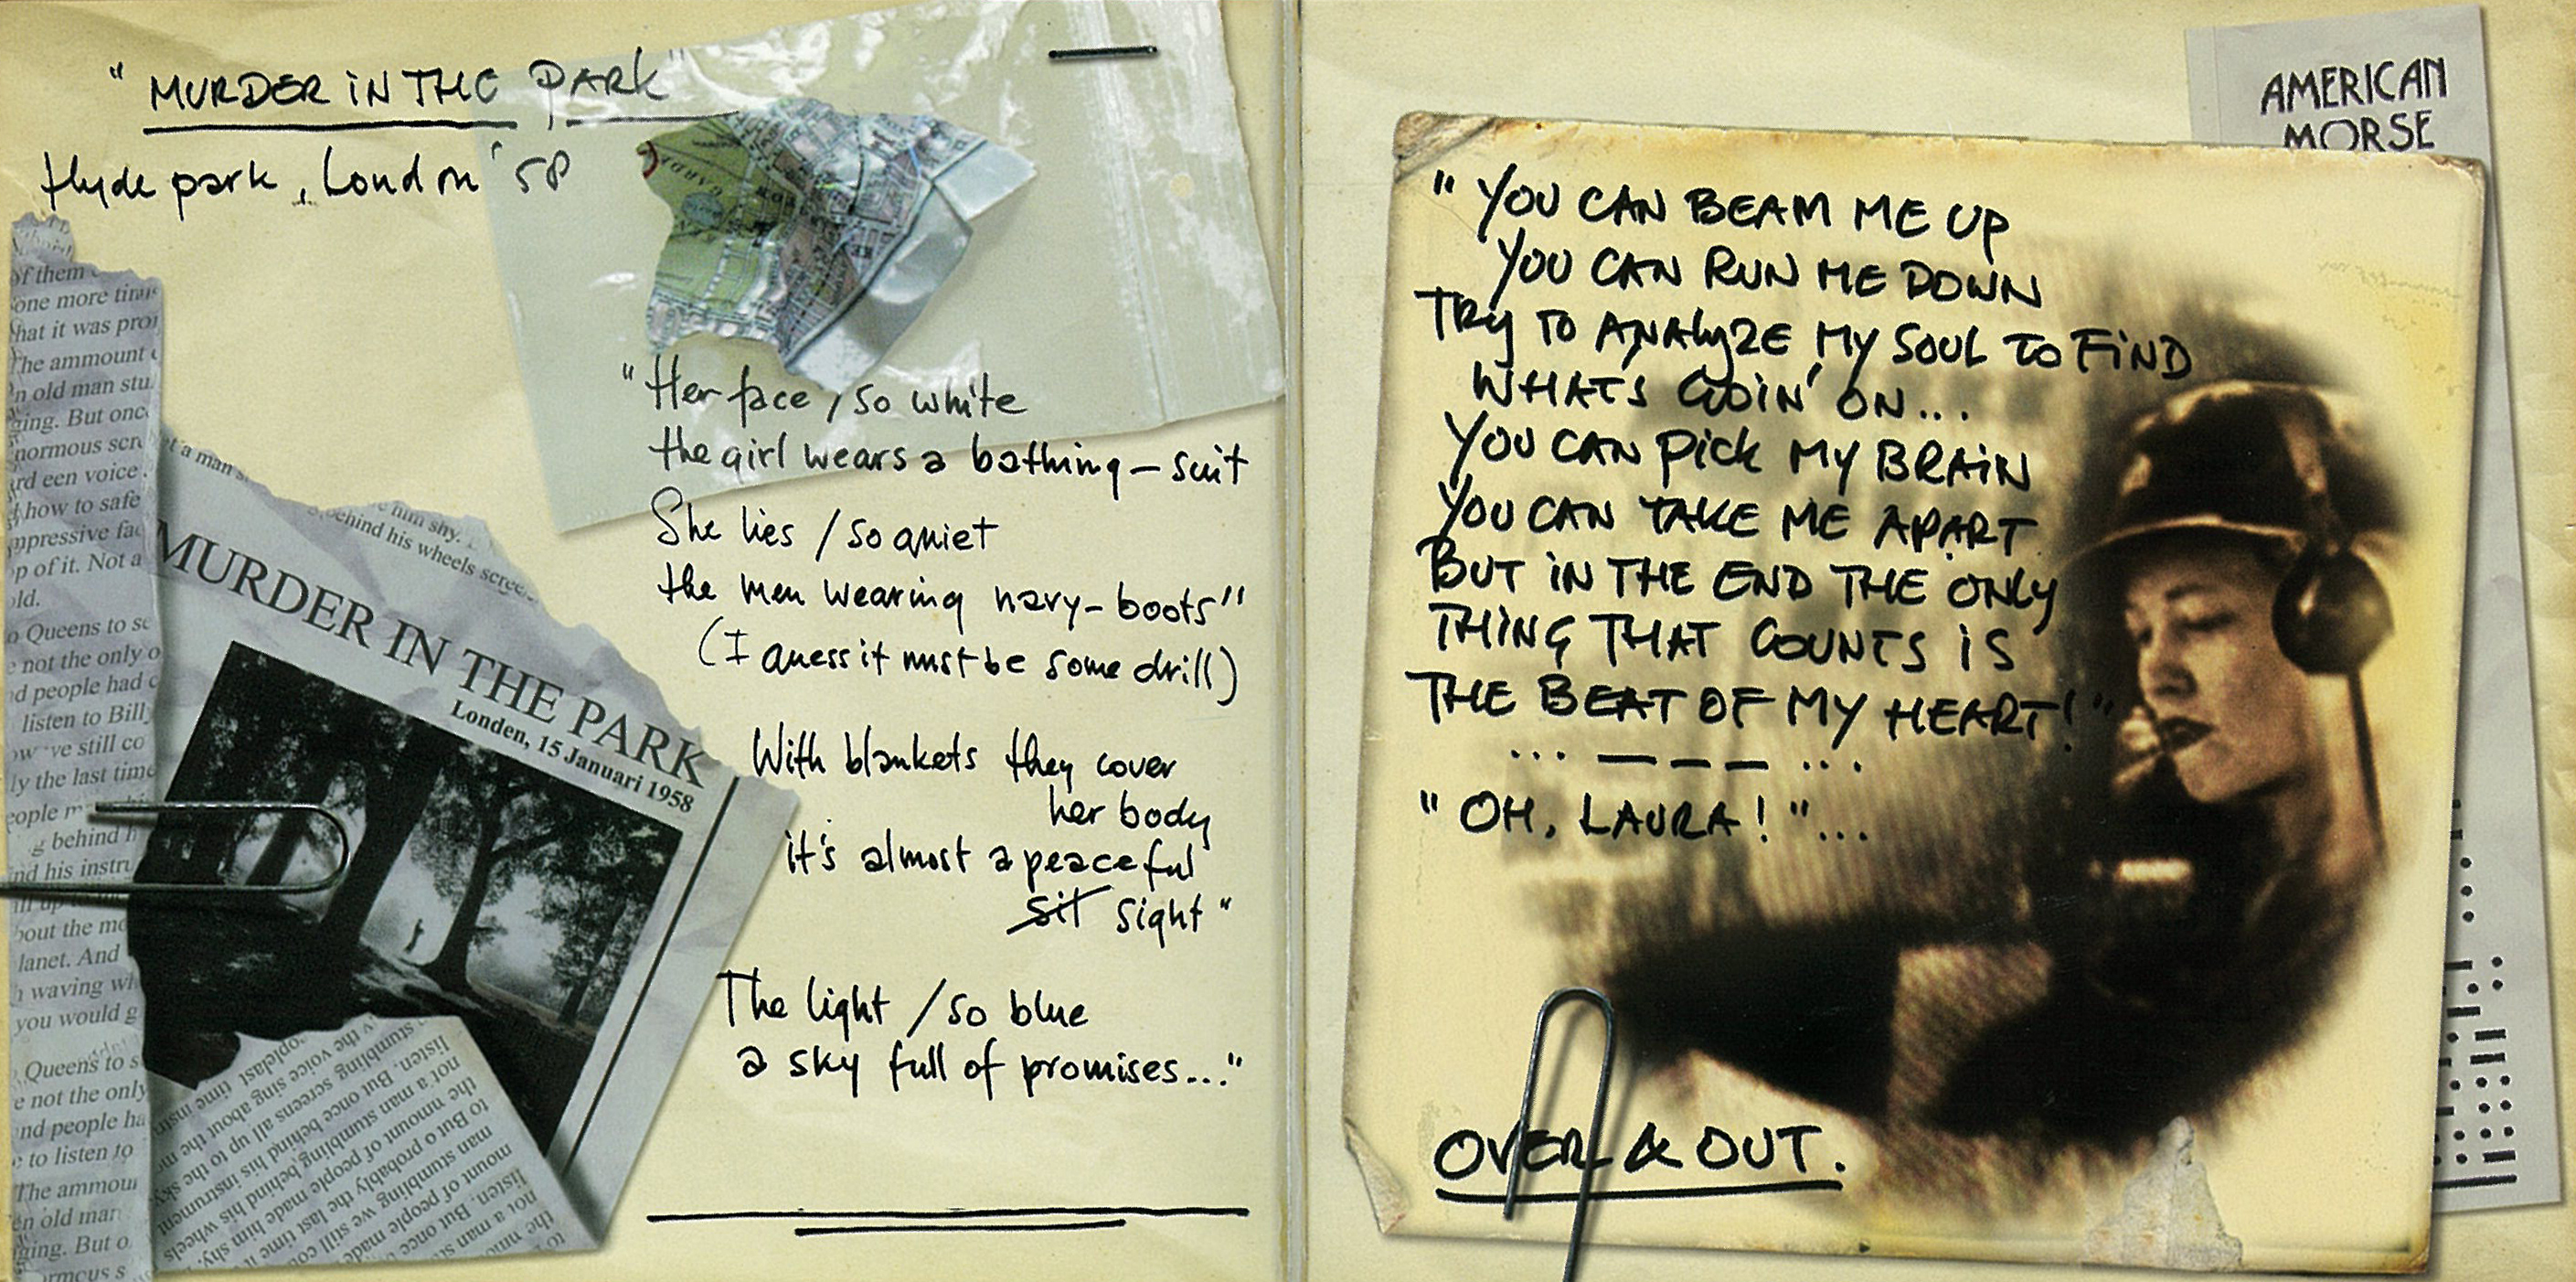 "MURDER iN THE PARK"
Hyde park, London '58
"Her face / so white
the girl wears a bathing-suit
She lies / so quiet
the men wearing navy-boots"
(I guess it must be some drill)
With blankets they cover
her body
it's almost a peaceful
sit sight"
The light / so blue
a sky full of promises..."
of them
one more time
hat it was pro
The ammount
n old man stu
ging. But once
normous scre
how to safe
mpressive fac
p of it. Not a
old.
o Queens to
not the only o
d people had
listen to Bill
still co
ly the last time
eople
behind
nd his instru
bout the mo
lanet. And
waving
you would g
Queens to s
e not the only
nd people ha
to listen to
The ammou
en old man
ging. But o
him shy.
behind his wheels screens
MURDER IN THE PARK
Londen, 15 Januari 1958
AMERICAN
MORSE
"YOU CAN BEAM ME UP
YOU CAN RUN ME DOWN
TRY TO ANALYZE MY SOUL TO FiND
WHAT'S GOiN' ON...
YOU CAN Pick MY BRAiN
YOU CAN TAKE ME APART
BUT iN THE END THE ONLY
THiNG THAT COUNTS iS
THE BEAT OF MY HEART!"
... — — — ...
"OH, LAURA!"...
OVER & OUT.